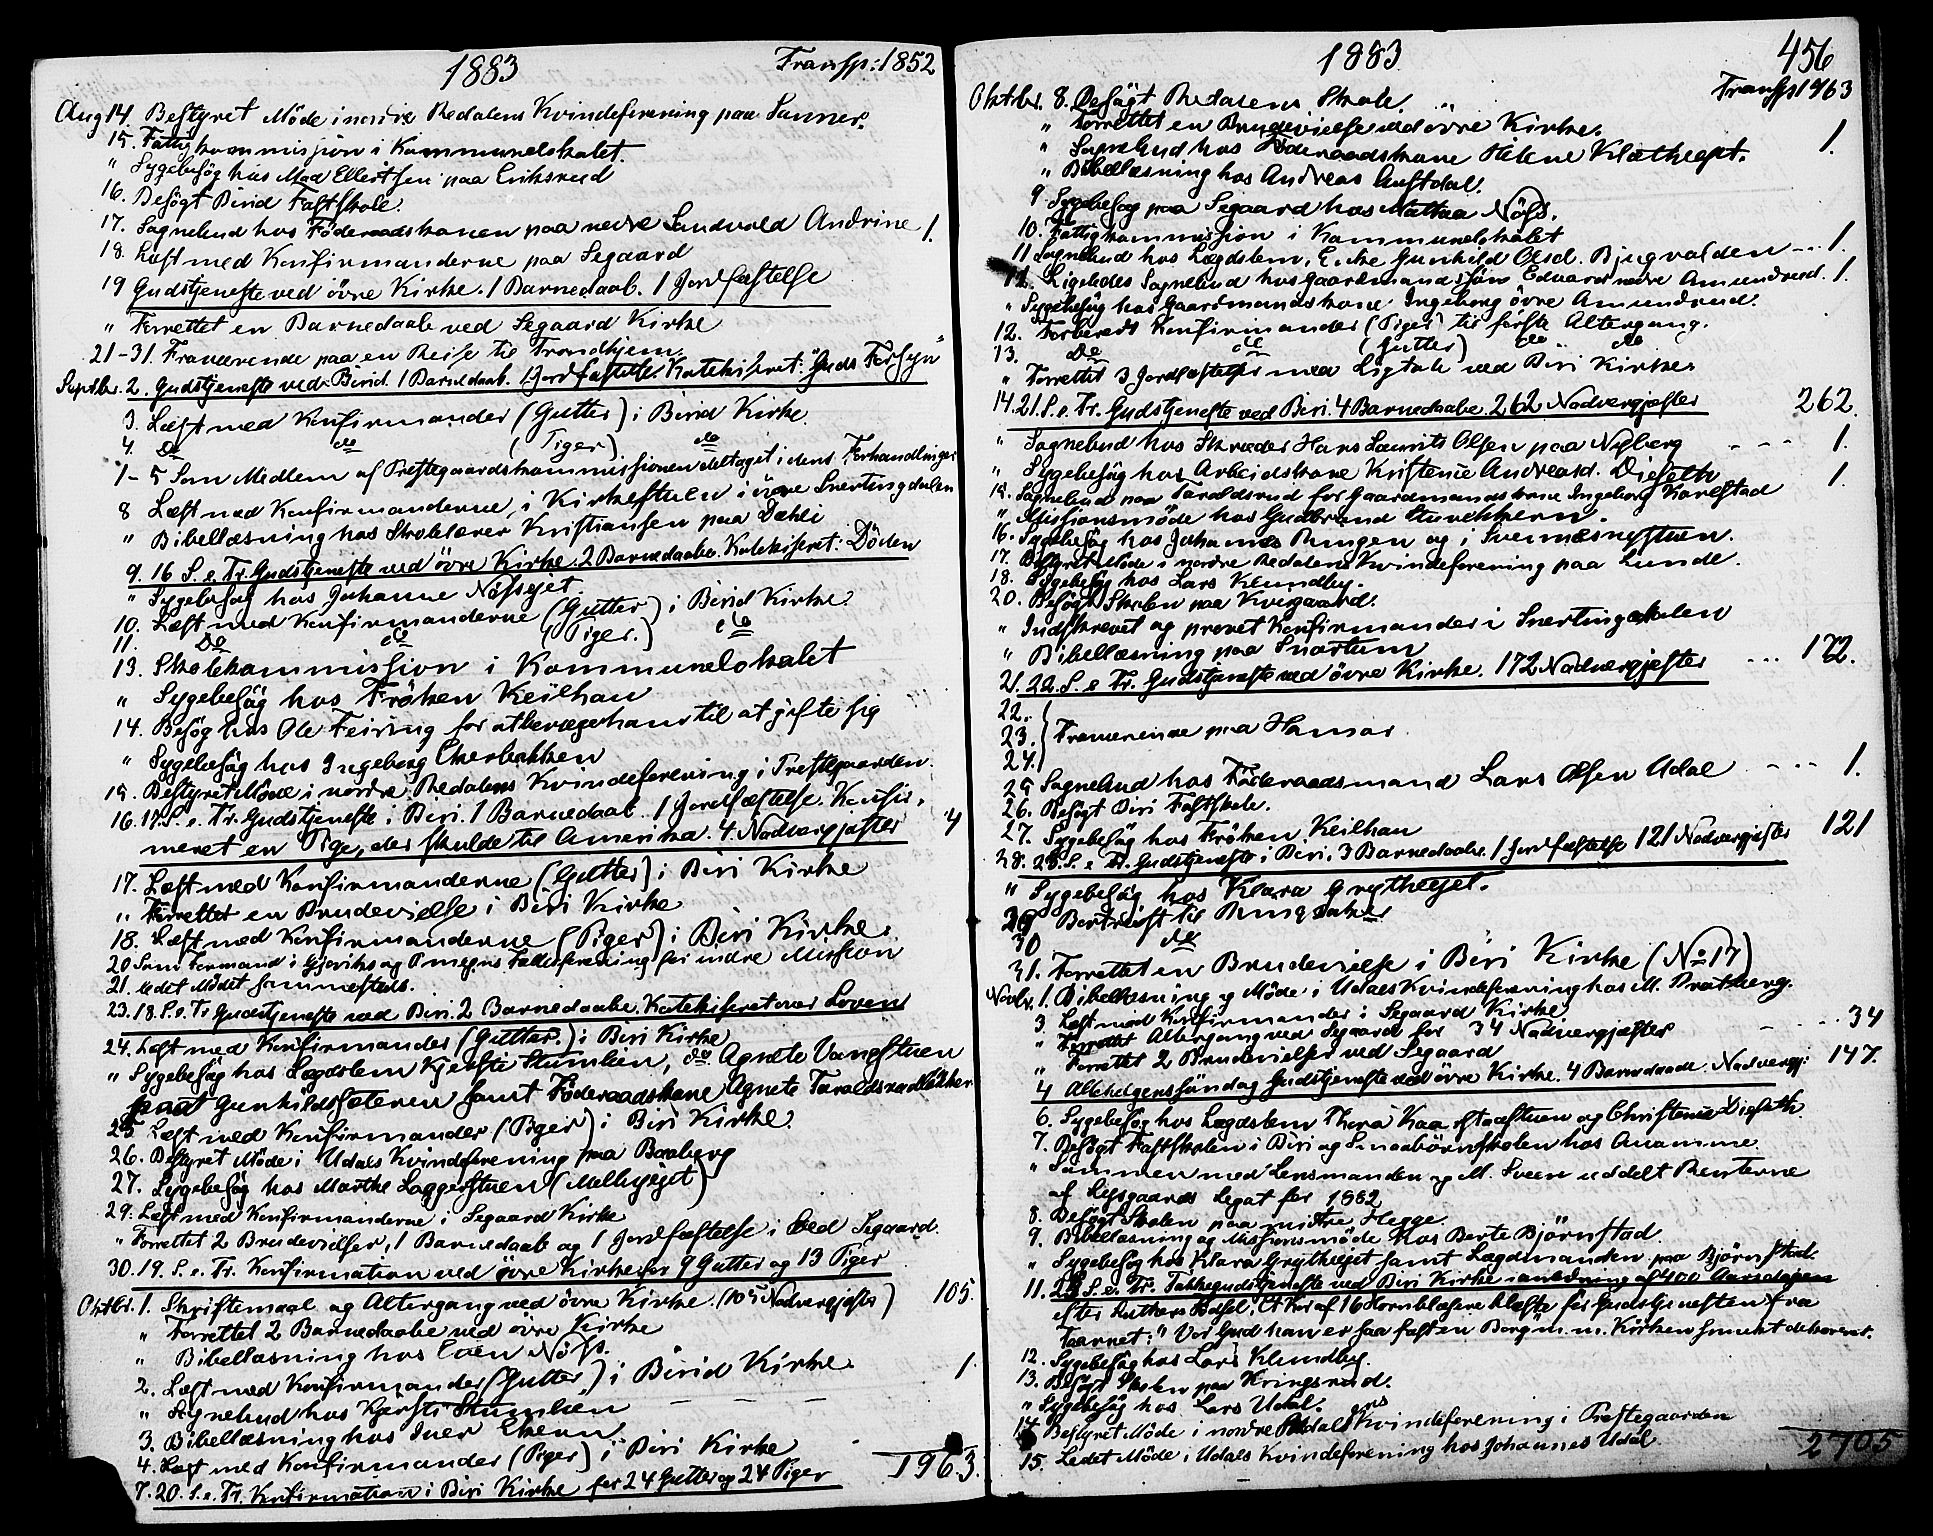 1883 Transp: 1852
Aug 14. Bestyret Möde i nordre Redalens Kvindeforening paa Sanner.
15. Fattigkommission i Kommunelokalet.
" Sygebesög hos Mad Ellertsen paa Eriksrud
16. Besögt Birid Fastskole.
17. Sognebud hos Föderaadskonen paa nedre Sandvold Andrine 1.
18. Læst med Konfirmanderne paa Segaard
19 Gudstjeneste ved övre Kirke. 1 Barnedaab. 1 Jordfæstelse
" Forrettet en Barnedaab ved Segaard Kirke
21-31. Fraværende paa en Reise til Trondhjem.
Septbr. 2. Gudstjeneste ved Birid. 1 Barnedaab. 1 Jordfæstelse. Katekiseret: "Guds Forsyn"
3. Læst med Konfirmander (Gutter) i Birid Kirke.
4. Do do (Piger) do
1-5 Som Medlem af Prestegaardskommissionen deltaget i dens Forhandlinger
8 Læst med Konfirmanderne i Kirkestuen i övre Snertingdalen
" Bibellæsning hos Skolelærer Kristiansen paa Dæhli
9. 16 S. e. Tr. Gudstjeneste ved övre Kirke. 2 Barnedaabe. Katekiseret: Döden
" Sygebesög hos Johanne Nöfsejet
10. Læst med Konfirmanderne (Gutter) i Birid Kirke.
11. Do do (Piger.) do
13. Skolekommission i Kommunelokalet
" Sygebesög hos Fröken Keilhau
14. Besög hos Ole Feiring for at bevæge ham til at gifte sig
" Sygebesög hos Ingeborg Ekerbakken
15. Bestyret Möde i nordre Redalens Kvindeforening i Prestegaarden.
16. 17. S. e. Tr. Gudstjeneste i Biri. 1 Barnedaab. 1 Jordfæstelse. Konfir- 4
meret en Pige, der skulde til Amerika. 4. Nadvergjæster
17. Læst med Konfirmanderne (Gutter) i Biri Kirke
" Forrettet en Brudevielse i Biri Kirke
18. Læst med Konfirmanderne (Piger) i Biri Kirke.
20 Som Formand i Gjöviks og Omegns Fællesforening for indre Mission
21. ledet Mödet sammesteds.
23. 18. S. e. Tr Gudstjeneste ved Biri. 2 Barnedaabe. Katekiseret over Loven
24. Læst med Konfirmander (Gutter.) i Biri Kirke
" Sygebesög hos Lægdslem Kjersti Stumlien, do Agnete Vangstuen
paa Gunhildssæteren samt Föderaadskone Agnete Taraldsrud
25. Læst med Konfirmander (Piger) i Biri Kirke.
26. Bestyret Möde i Udals Kvindeforening paa Braaberg
27. Sygebesög hos Marthe Laggerstuen (Melbyejet)
29. Læst med Konfirmanderne i Segaard Kirke
" Forrettet 2 Brudevielser, 1 Barnedaab og 1 Jordfæstelse i ved Segaard.
30. 19. S. e. Tr. Konfirmation ved övre Kirke for 9 Gutter og 13 Piger
Oktbr. 1. Skriftemaal og Altergang ved övre Kirke. (105 Nadvergjæster) 105.
" Forrettet 2 Barnedaabe ved övre Kirke
" Bibellæsning hos Even Nöfs.
2. Læst med Konfirmander (Gutter) i Birid Kirke. 1.
" Sognebud hos Kjersti Stumlien - - -
3. Bibellæsning hos Iver Ekern.
4. Læst med Konfirmander (Piger) i Biri Kirke
7. 20. S. e. Tr. Konfirmation i Biri Kirke for 24 Gutter og 24 Piger 1963.
1883. 456
Transp 1963
Oktbr. 8. Besögt Redalens Skole.
" Forrettet en Brudevielse ved övre Kirke.
" Sognebud hos Föderaadskone Helene Klætheejet. 1.
" Bibellæsning hos Andreas Austdal.
9 Sygebesög paa Segaard hos Mathea Nöfs.
10. Fattigkommission i Kommunelokalet
11 Sognebud hos Lægdslem, Enke Gunhild Olsd. Bjugvolden - .. 1.
12. Ligeledes Sognebud hos Gaardmandssön Edvard nedre Amundrud. 1.
" Sygebesög hos Gaardmandskone Ingeborg övre Amundrud.
12. Forberedt Konfirmander (Piger) til förste Altergang.
13. Do do (Gutter) do do
" Forrettet 3 Jordfæstelser med Ligtale ved Biri Kirke
14. 21. S. e. Tr. Gudstjeneste ved Biri. 4 Barnedaabe. 262 Nadvergjæster 262.
" Sognebud hos Skræder Hans Laurits Olsen paa Nyberg - - - 1.
" Sygebesög hos Arbeidskone Kristense Andreasd. Dieseth 1.
15. Sognebud paa Taraldsrud for Gaardmandskone Ingeborg Karlstad
" Missionsmöde hos Gudbrand Stuvekkern.
16. Sygebesög hos Johannes Rungen og i Sveinæsnystuen.
17. Bestyret Möde i nordre Redalens Kvindeforening paa Lunde.
18. Sygebesög hos Lars Klundby.
20. Besögt Skolen paa Kvigaard.
" Indskrevet og prövet Konfirmander i Snertingdalen
" Bibellæsning paa Snartum
21. 22. S. e Tr. Gudstjeneste ved övre Kirke. 172 Nadvergjæster ... 172.
22.
23. Fraværende paa Hamar
24.
25 Sognebud hos Föderaadsmand Lars Olsen Udal - - - 1.
26. Besögt Biri Fastskole.
27. Sygebesög hos Fröken Keilhau
28. 23. S. e Tr. Gudstjeneste i Biri. 3 Barnedaabe. 1 Jordfæstelse 121 Nadvergjæster 121
" Sygebesög hos Klara Grytheejet.
29 Bortreist til Ringsaker
30 do
31. Forrettet en Brudevielse i Biri Kirke (No 17)
Novbr. 1. Bibellæsning og Möde i Udals Kvindeforening hos M. Bratberg.
3. Læst med Konfirmander i Segaard Kirke
" Forrettet Altergang ved Segaard for 34 Nadvergjæster - - .. 34
" Forrettet 2 Brudevielser ved Segaard
4 Allehelgenssöndag Gudstjeneste ved övre Kirke. 4 Barnedaabe. Nadvergj: 147.
6. Sygebesög hos Lægdslem Thora Kaarstadstuen og Christense Dieseth
7. Besögt Fastskolen i Biri og Smaabörnskolen hos Anamme
" Sammen med Lensmanden og M. Sveen uddelt Renterne
af Lysgaards Legat for 1882
8. Besögt Skolen paa midtre Hegge.
9. Bibellæsning og Missionsmöde hos Berte Björnstad.
" Sygebesög hos Klara Grytheejet samt Lægdmanden paa Björnstad.
11. 25 S. e. Tr. Takkegudstjeneste ved Biri Kirke i anledning af 400 Aarsdagen
efter Luthers Födsel. Et Kor af 16 Hornblæsere blæste för Gudstjenesten fra
Taarnet: "Vor Gud han er saa fast en Borg" m. m. Kirken smukt dekoreret.
12. Sygebesög hos Lars Klundby.
13. Besögt Skolen paa Kringsrud.
" Sygebesög hos Lars Udal.
14 Bestyret Möde i nordre Redalens Kvindeforening i Prestegaarden
15. Ledet Möde i Udals Kvindeforening hos Johannes Udal. 2705